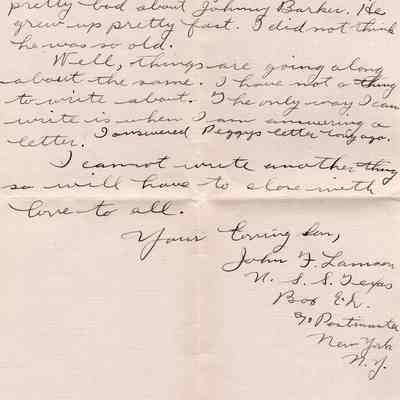 pretty bad about Johnny Barker. He
grew up pretty fast. I did not think
he was so old.
Well, things are going along
about the same. I have not a thing
to write about. The only way I can
write is when I am answering a
letter. I answered Peggys letter long ago.
I cannot write another thing
so will have to close with
love to all.
Your loving Son,
John F. Lamson
U. S. S. Texas
Box E.L.
c/o Postmaster
New York
N. Y.